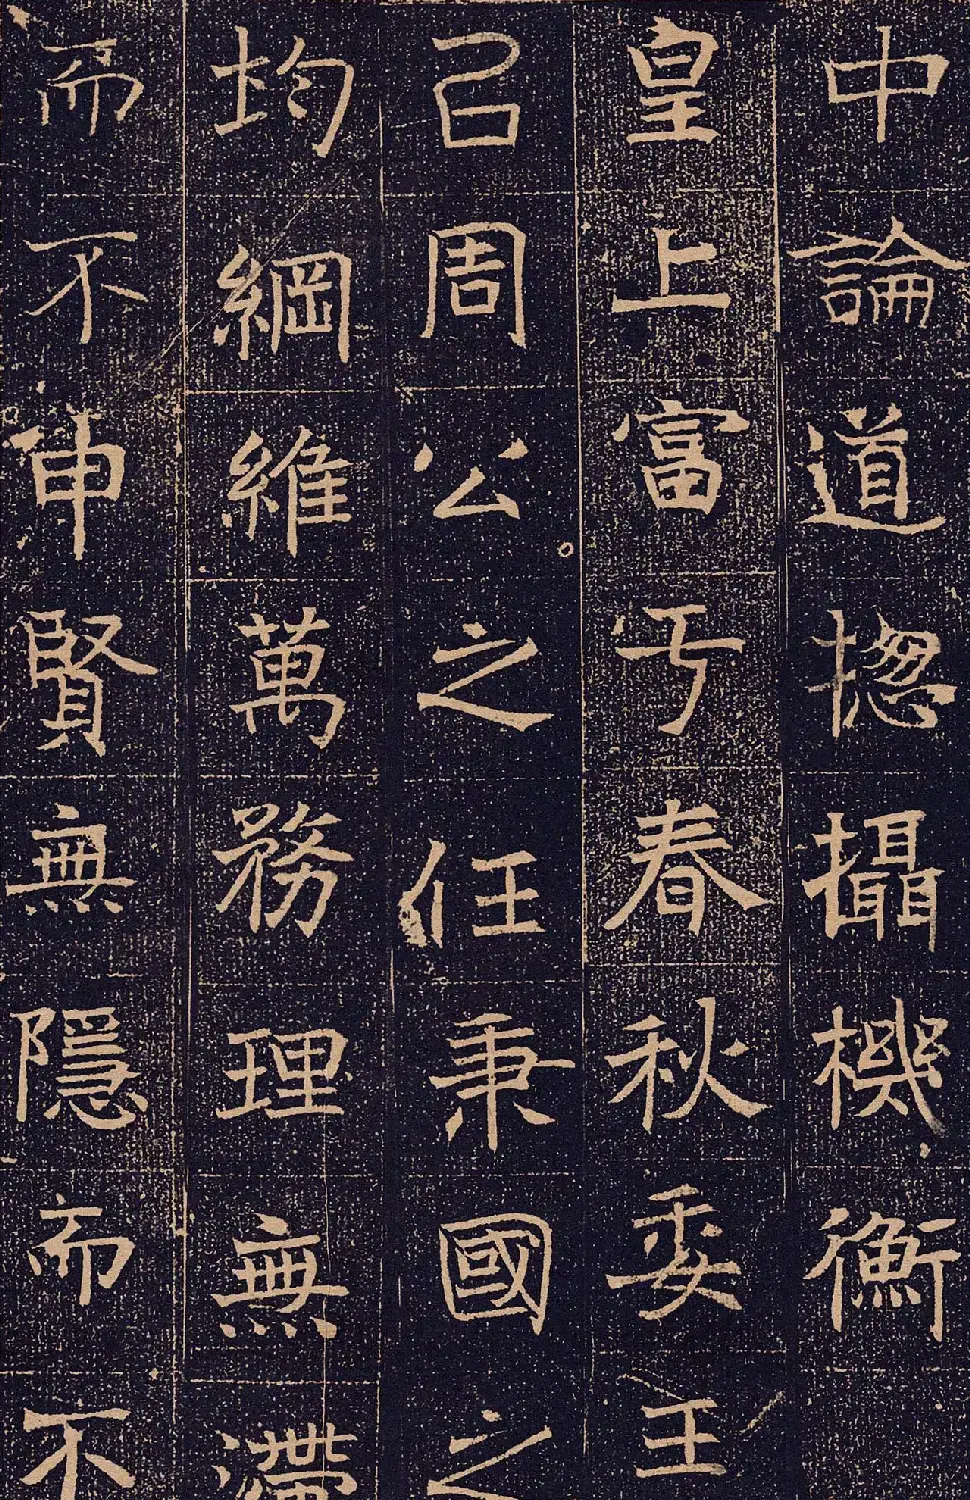 中論道揔攝機衡
皇上富于春秋委王
召周公之任秉國之
均綱維萬務理無滯
而不申賢無隱而不